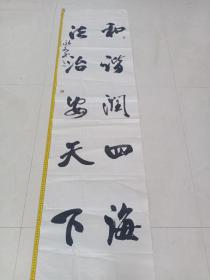 和谐润四海
法治安天下